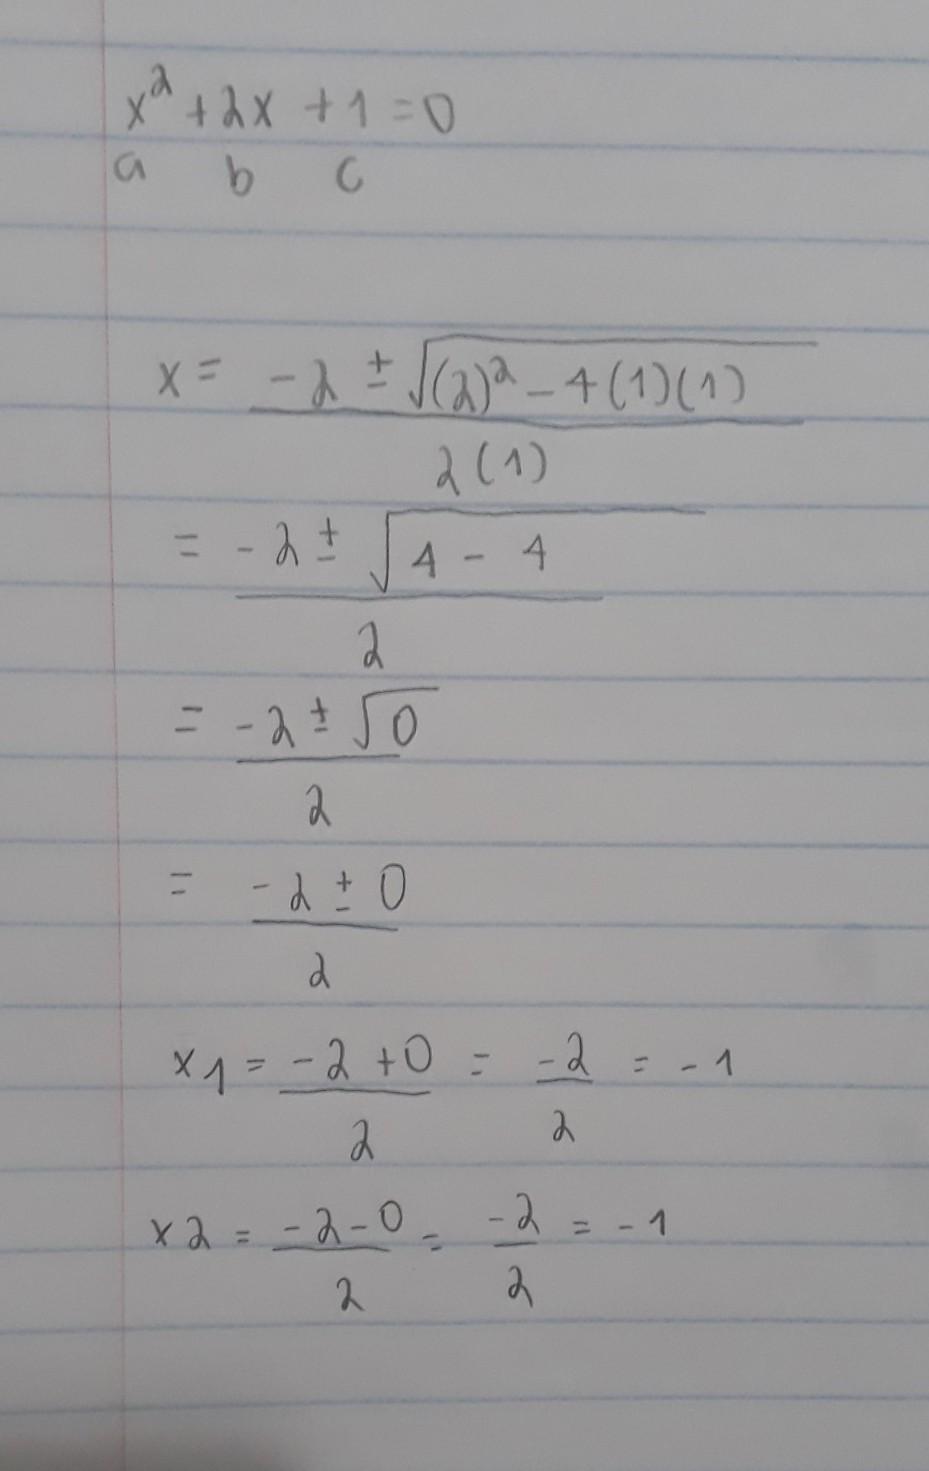 x² + 2x + 1 = 0
a b c
x = -2 ± √(2)² - 4(1)(1)
2(1)
= -2 ± √4 - 4
2
= -2 ± √0
2
= -2 ± 0
2
x1 = -2 + 0 = -2 = -1
2 2
x2 = -2 - 0 = -2 = -1
2 2